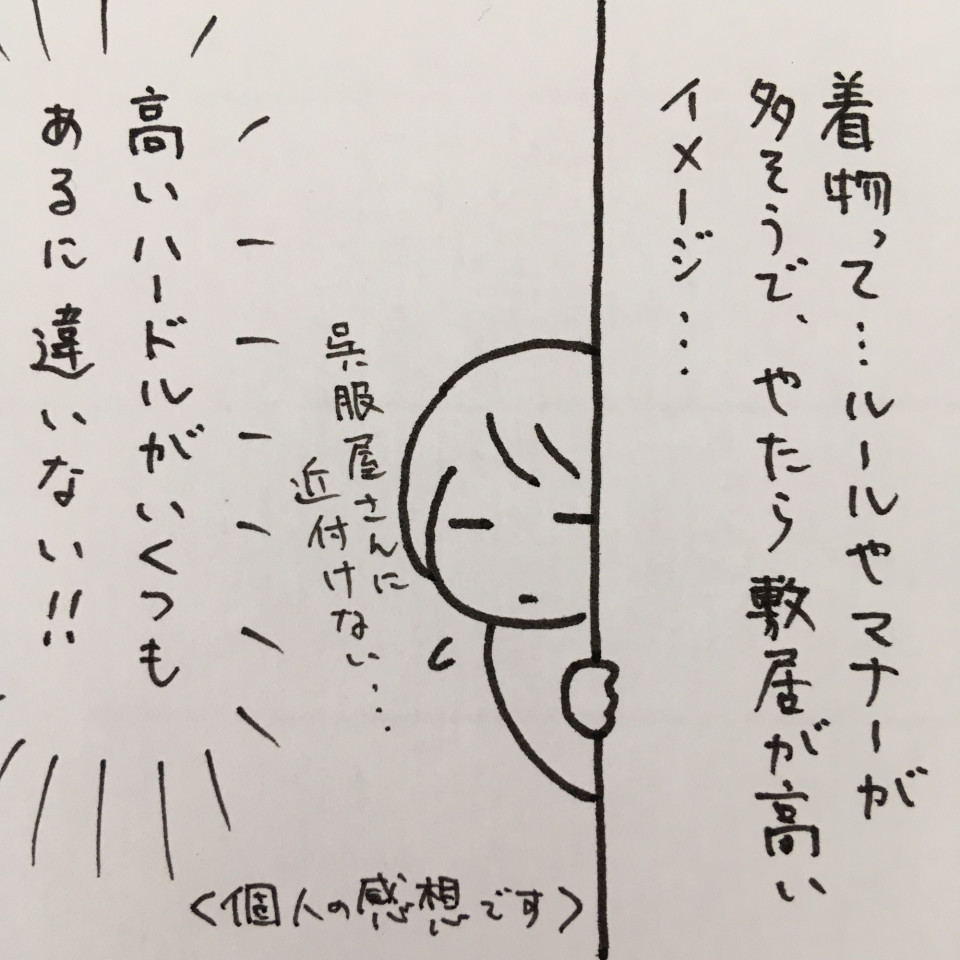 着物って…ルールやマナーが
多そうで、やたら敷居が高い
イメージ…
呉服屋さんに
近付けない…
高いハードルがいくつも
あるに違いない!!
<個人の感想です>